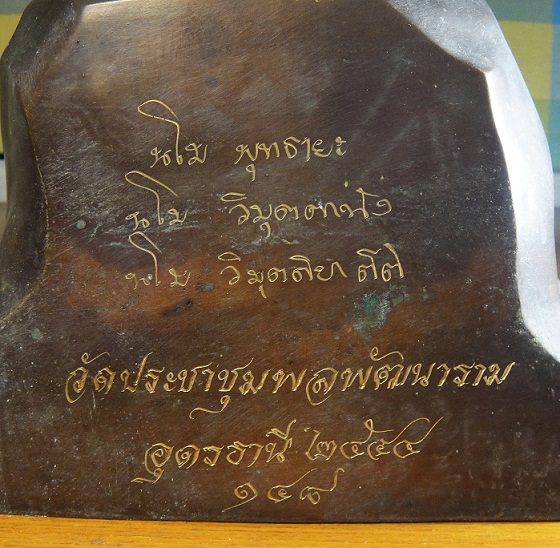 นโม พุทธายะ
นโม วิมุตตานัง
นโม วิมุตติยา ตีติ
วัดประชาชุมพลพัฒนาราม
อุดรธานี ๒๕๕๔
๑๔๘